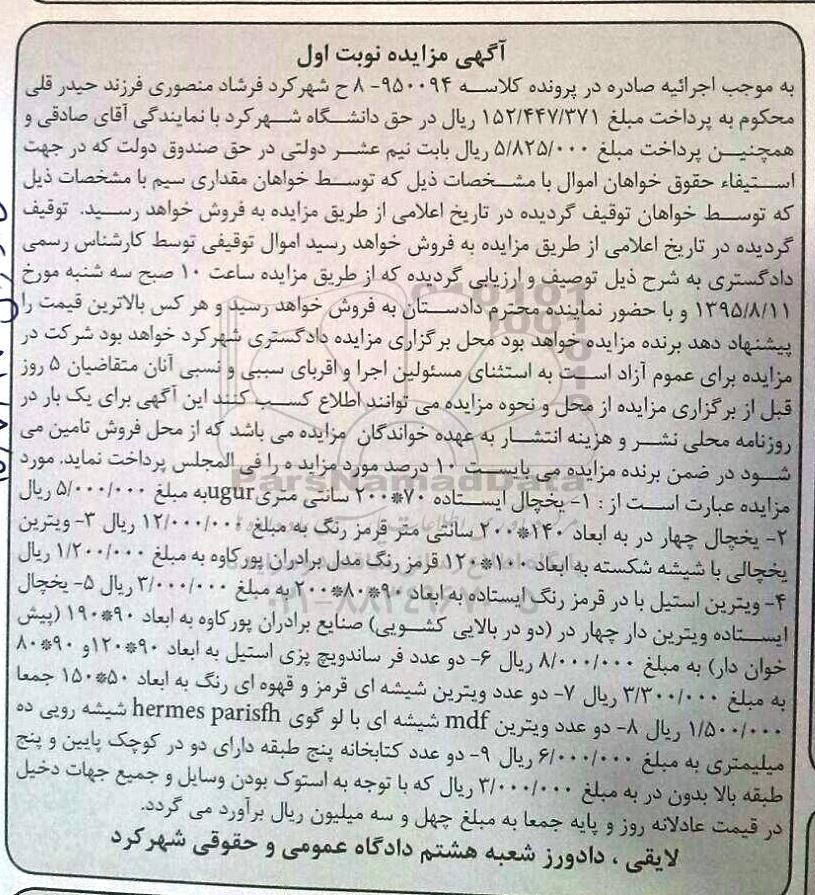 آگهی مزایده نوبت اول
به موجب اجرائیه صادره در پرونده کلاسه ۹۵۰۰۹۴- ۸ ح شهرکرد فرشاد منصوری فرزند حیدر قلی
محکوم به پرداخت مبلغ ۱۵۲/۴۴۷/۳۷۱ ریال در حق دانشگاه شهرکرد با نمایندگی آقای صادقی و
همچنین پرداخت مبلغ ۵/۸۲۵/۰۰۰ ریال بابت نیم عشر دولتی در حق صندوق دولت که در جهت
استیفاء حقوق خواهان اموال با مشخصات ذیل که توسط خواهان مقداری سیم با مشخصات ذیل
که توسط خواهان توقیف گردیده در تاریخ اعلامی از طریق مزایده به فروش خواهد رسید. توقیف
گردیده در تاریخ اعلامی از طریق مزایده به فروش خواهد رسید اموال توقیفی توسط کارشناس رسمی
دادگستری به شرح ذیل توصیف و ارزیابی گردیده که از طریق مزایده ساعت ۱۰ صبح سه شنبه مورخ
۱۳۹۵/۸/۱۱ و با حضور نماینده محترم دادستان به فروش خواهد رسید و هر کس بالاترین قیمت را
پیشنهاد دهد برنده مزایده خواهد بود محل برگزاری مزایده دادگستری شهرکرد خواهد بود شرکت در
مزایده برای عموم آزاد است به استثنای مسئولین اجرا و اقربای سببی و نسبی آنان متقاضیان ۵ روز
قبل از برگزاری مزایده از محل و نحوه مزایده می توانند اطلاع کسب کنند این آگهی برای یک بار در
روزنامه محلی نشر و هزینه انتشار به عهده خواندگان مزایده می باشد که از محل فروش تامین می
شود در ضمن برنده مزایده می بایست ۱۰ درصد مورد مزایده را فی المجلس پرداخت نماید. مورد
مزایده عبارت است از : ۱- یخچال ایستاده ۷۰*۲۰۰ سانتی متری ugur به مبلغ ۵/۰۰۰/۰۰۰ ریال
۲- یخچال چهار در به ابعاد ۱۴۰*۲۰۰ سانتی متر قرمز رنگ به مبلغ ۱۲/۰۰۰/۰۰۰ ریال ۳- ویترین
یخچالی با شیشه شکسته به ابعاد ۱۰۰*۱۲۰ قرمز رنگ مدل برادران پورکاوه به مبلغ ۱/۲۰۰/۰۰۰ ریال
۴- ویترین استیل با در قرمز رنگ ایستاده به ابعاد ۹۰*۸۰*۲۰۰ به مبلغ ۳/۰۰۰/۰۰۰ ریال ۵- یخچال
ایستاده ویترین دار چهار در (دو در بالایی کشویی) صنایع برادران پورکاوه به ابعاد ۹۰*۱۹۰ (پیش
خوان دار) به مبلغ ۸/۰۰۰/۰۰۰ ریال ۶- دو عدد فر ساندویچ پزی استیل به ابعاد ۹۰*۱۲۰ و ۹۰*۸۰
به مبلغ ۳/۳۰۰/۰۰۰ ریال ۷- دو عدد ویترین شیشه ای قرمز و قهوه ای رنگ به ابعاد ۵۰*۱۵۰ جمعا
۱/۵۰۰/۰۰۰ ریال ۸- دو عدد ویترین mdf شیشه ای با لو گوی hermes parisfh شیشه رویی ده
میلیمتری به مبلغ ۶/۰۰۰/۰۰۰ ریال ۹- دو عدد کتابخانه پنج طبقه دارای دو در کوچک پایین و پنج
طبقه بالا بدون در به مبلغ ۳/۰۰۰/۰۰۰ ریال که با توجه به استوک بودن وسایل و جمیع جهات دخیل
در قیمت عادلانه روز و پایه جمعا به مبلغ چهل و سه میلیون ریال برآورد می گردد.
لایقی ، دادورز شعبه هشتم دادگاه عمومی و حقوقی شهرکرد
ParsNamadData